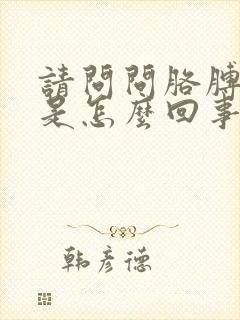 請問問胳膊
是怎麼回事
韩彦德